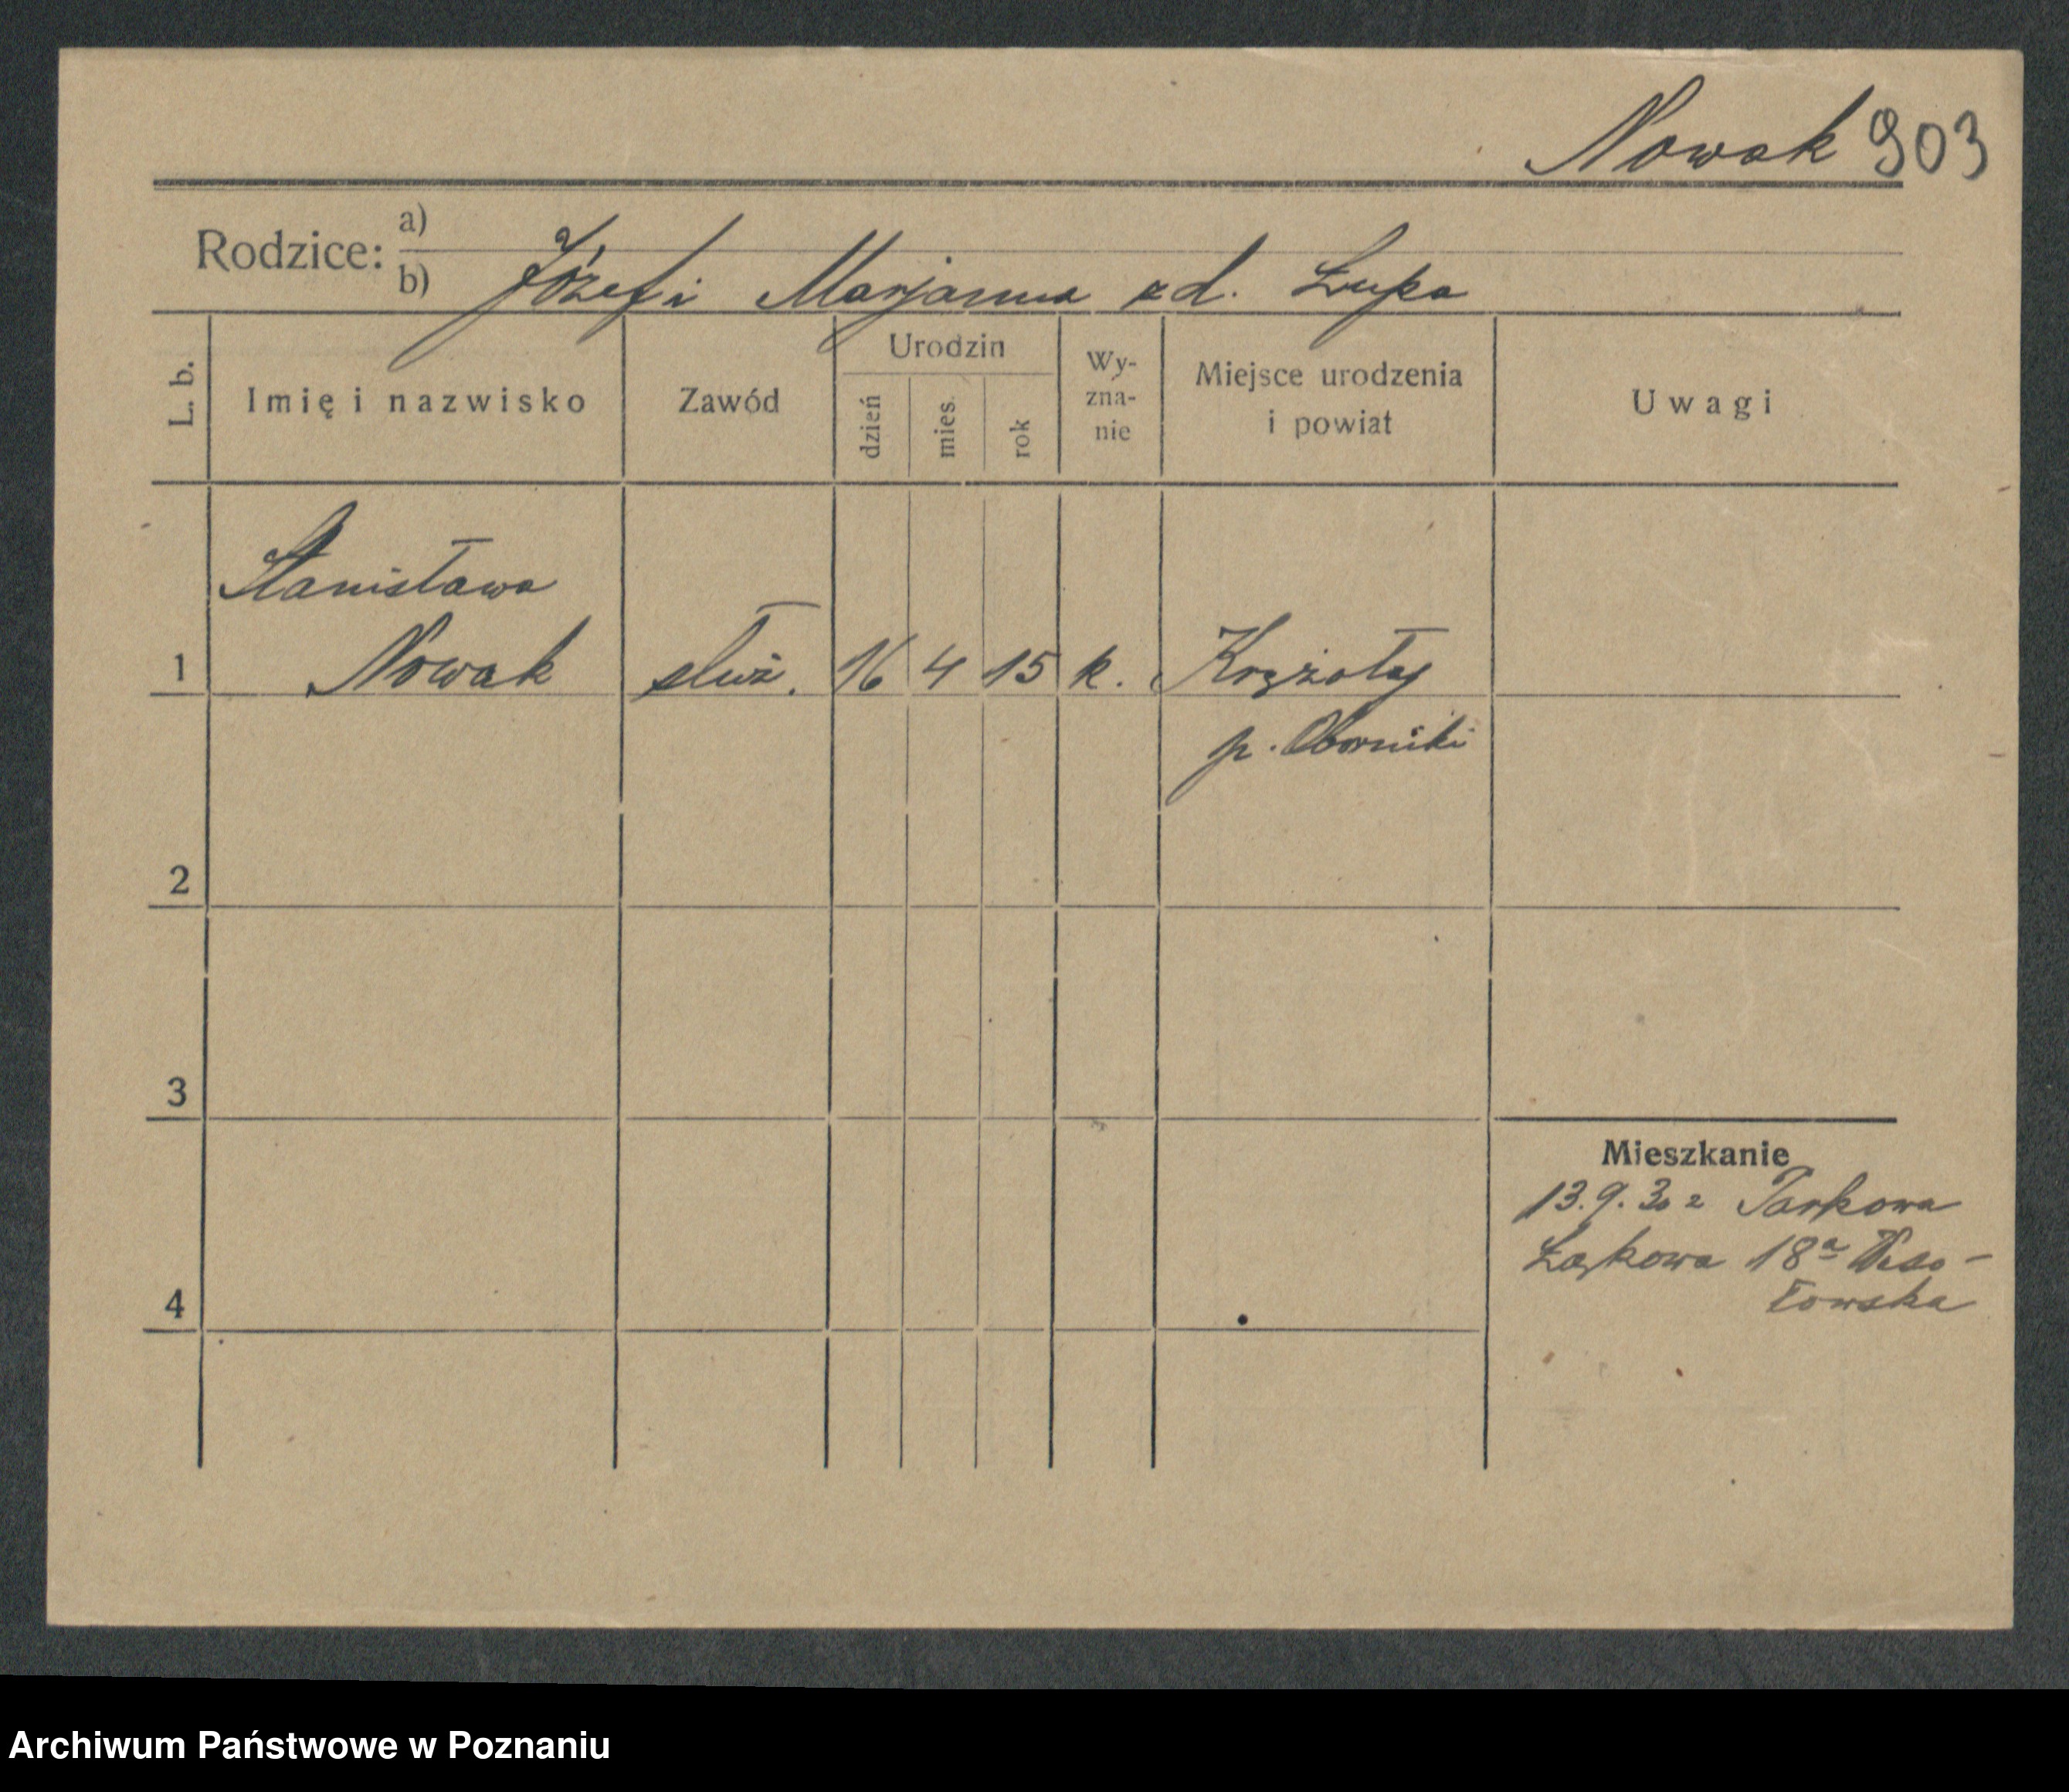 Nowak 903
Rodzice: a)
b) Józef i Marjanna z d. Łupa
L. b.
Imię i nazwisko
Zawód
Urodzin
dzień
mies.
rok
Wy-
zna-
nie
Miejsce urodzenia
i powiat
Uwagi
Stanisława
1 Nowak służ. 16 4 15 k. Krzyżoły
p. Oborniki
2
3
Mieszkanie
13.9.30 z Parkowa
Łąkowa 18a Weso-
łowska
4
Archiwum Państwowe w Poznaniu